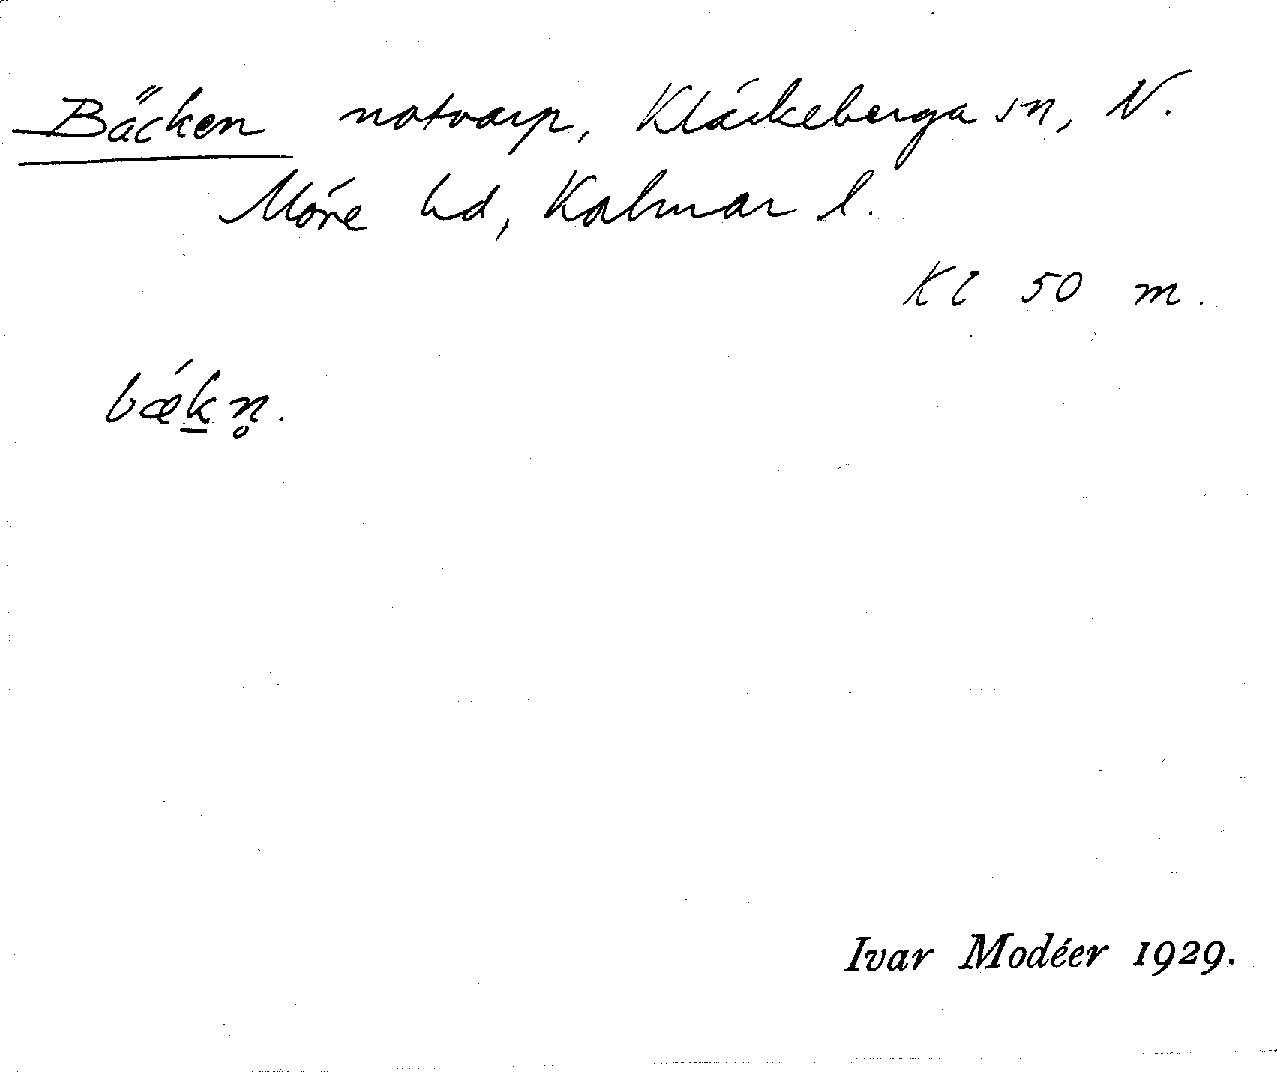 Bäcken notvarp, Kläckeberga sn, N.
Möre hd, Kalmar l.
Kl 50 m.
bǽk̲n̥.
Ivar Modéer 1929.